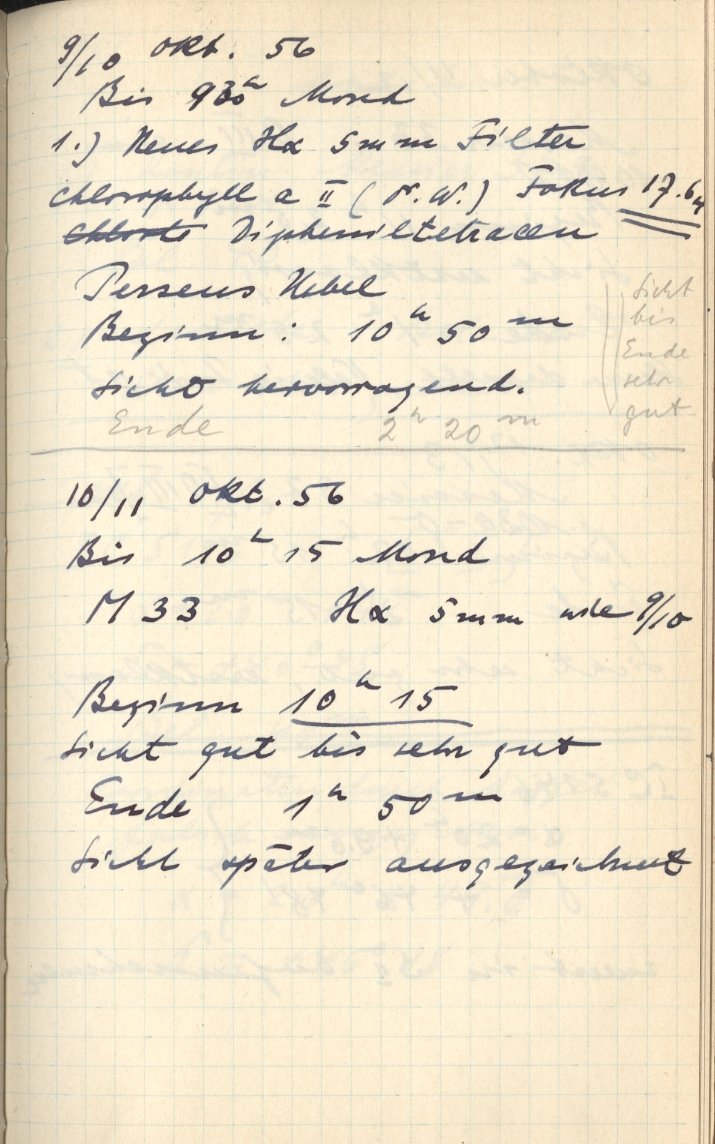 9/10 Okt. 56
Bis 935ʰ Mond
1.) Neues Hα 5mm Filter
Chlorophyll a II (N.W.) Fokus 17.64
Chloro Dipheniltetracen
Perseus Nebel
Beginn: 10ʰ 50ᵐ
Sicht hervorragend.
Ende 2ʰ 20ᵐ
Sicht
bis
Ende
sehr
gut
10/11 Okt. 56
Bis 10ʰ 15 Mond
M 33 Hα 5mm wie 9/10
Beginn 10ʰ 15
Sicht gut bis sehr gut
Ende 1ʰ 50ᵐ
Sicht später ausgezeichnet